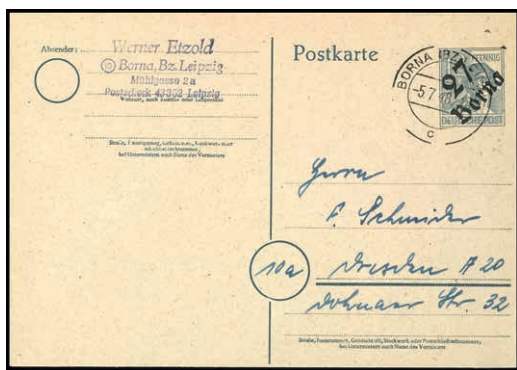 Absender:
Werner Etzold
Borna, Bz. Leipzig
Mühlgasse 2a
Postscheck 43352 Leipzig
Wohnort, auch Zustell- oder Leitpostamt
Straße, Hausnummer, Gebäudeteil, Stockwerk oder
Postschließfachnummer,
bei Untermietern auch Name des Vermieters
Postkarte
BORNA (BZ
-5.7.
c
PFENNIG
DEUTSCHE POST
27
Borna
Herrn
F. Schneider
10a
Dresden A 20
Dohnaer Str. 32
Straße, Hausnummer, Gebäudeteil, Stockwerk oder Postschließfachnummer,
bei Untermietern auch Name des Vermieters